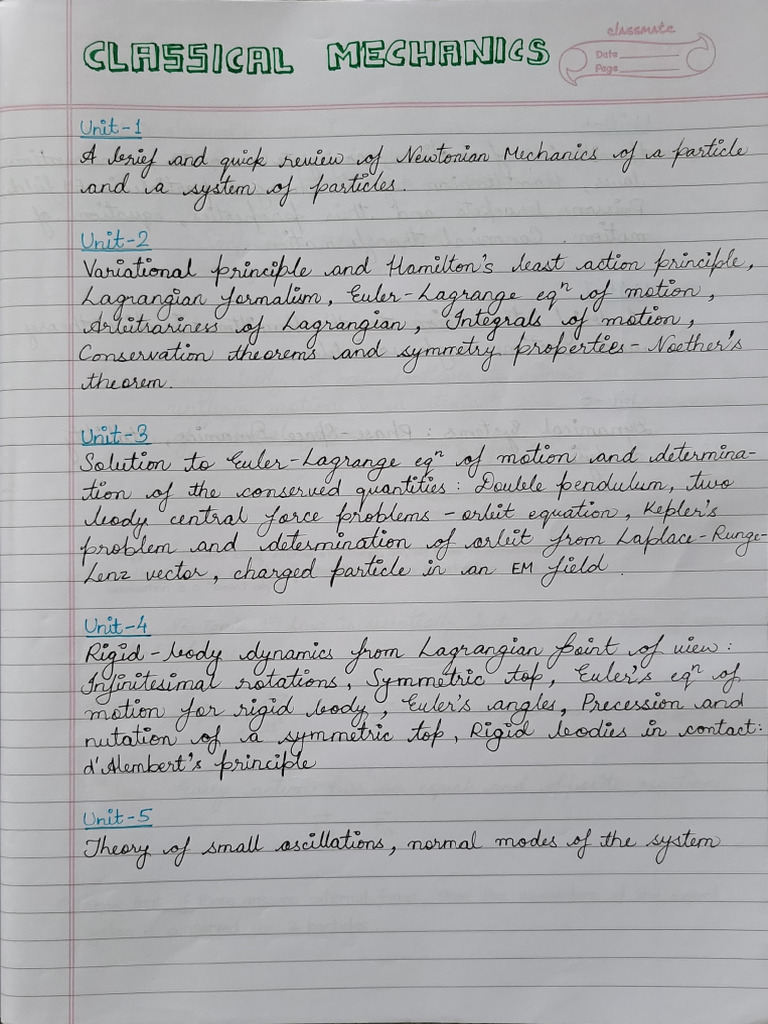 CLASSICAL MECHANICS
classmate
Date
Page
Unit-1
A brief and quick review of Newtonian Mechanics of a particle
and a system of particles.
Unit-2
Variational principle and Hamilton's least action principle,
Lagrangian formalism, Euler-Lagrange eqⁿ of motion,
Arbitrariness of Lagrangian, Integrals of motion,
Conservation theorems and symmetry properties - Noether's
theorem.
Unit-3
Solution to Euler-Lagrange eqⁿ of motion and determina-
tion of the conserved quantities: Double pendulum, two
body central force problems - orbit equation, Kepler's
problem and determination of orbit from Laplace-Runge-
Lenz vector, charged particle in an EM field.
Unit-4
Rigid-body dynamics from Lagrangian point of view:
Infinitesimal rotations, Symmetric top, Euler's eqⁿ of
motion for rigid body, Euler's angles, Precession and
nutation of a symmetric top, Rigid bodies in contact:
d'Alembert's principle
Unit-5
Theory of small oscillations, normal modes of the system